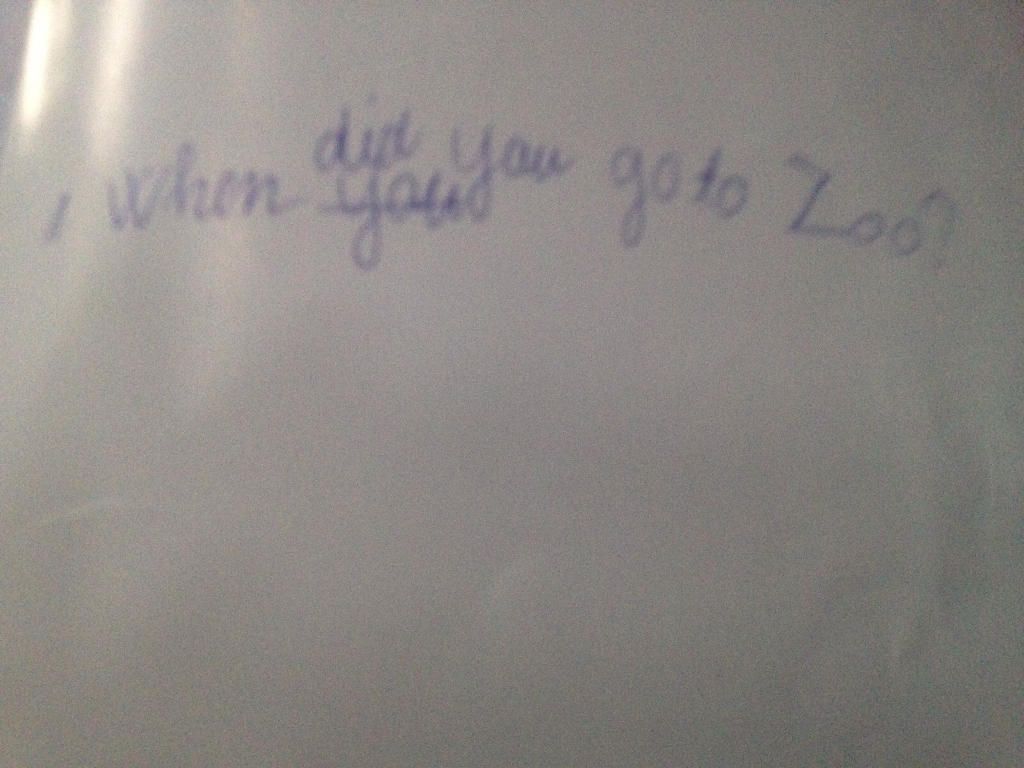 , When did you go to Zoo?
you